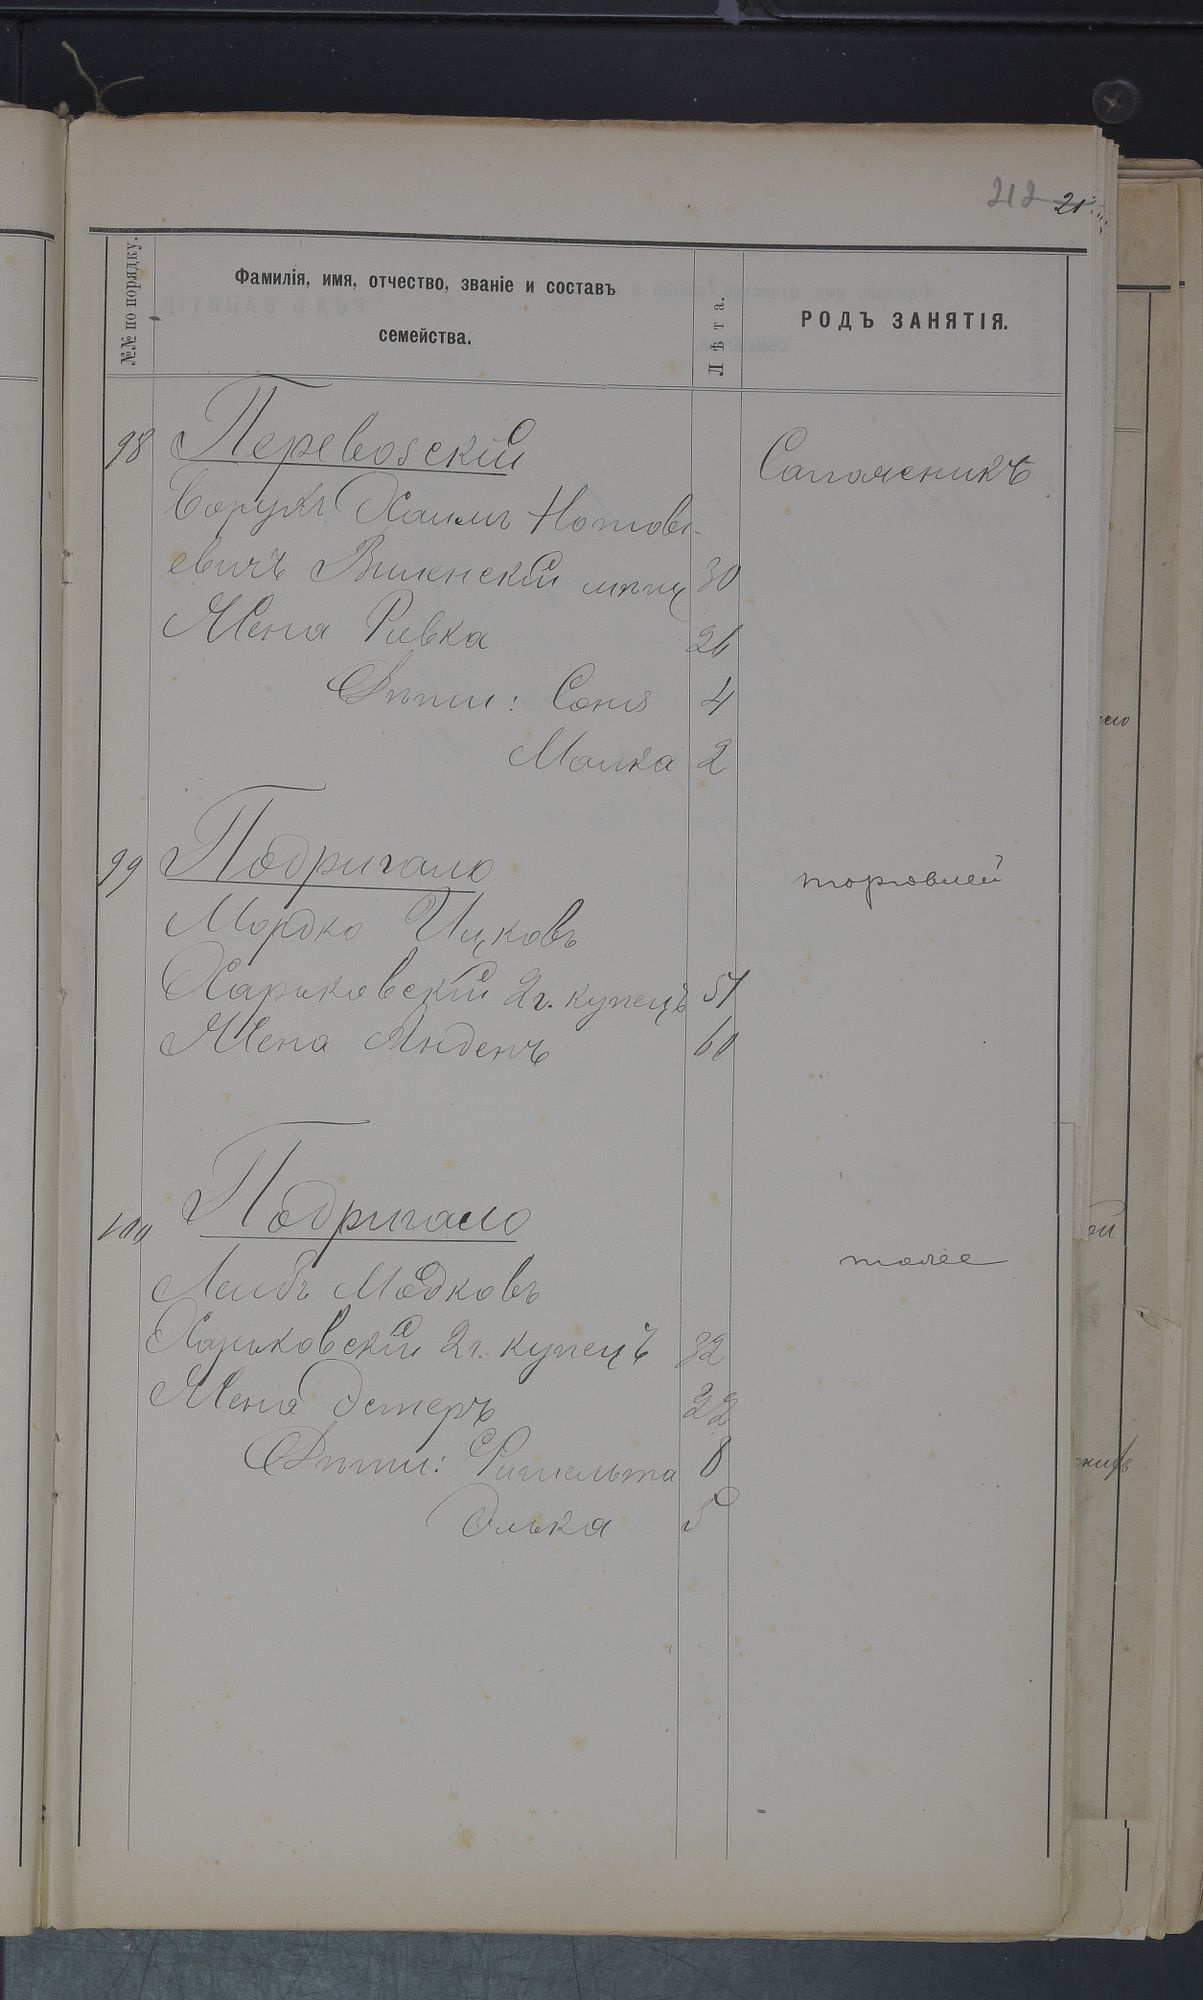 212
№№ по порядку.
Фамилія, имя, отчество, званіе и составъ
семейства.
Лѣта.
РОДЪ ЗАНЯТІЯ.
98 Перевозскій Сапожникъ
Борухъ Хаимъ Нотовь-
евичъ Виленскій мѣщ 30
Жена Ривка 26
Дѣти: Соня 4
Малка 2
99 Подригало торговлей
Мордко Ицковъ
Харьковскій 2 г. купецъ 51
Жена 60
100 Подригало тоже
Лейбъ Модковъ
Харьковскій 2 г. купецъ 32
Жена Эстеръ 22
Дѣти: 8
Элька 5